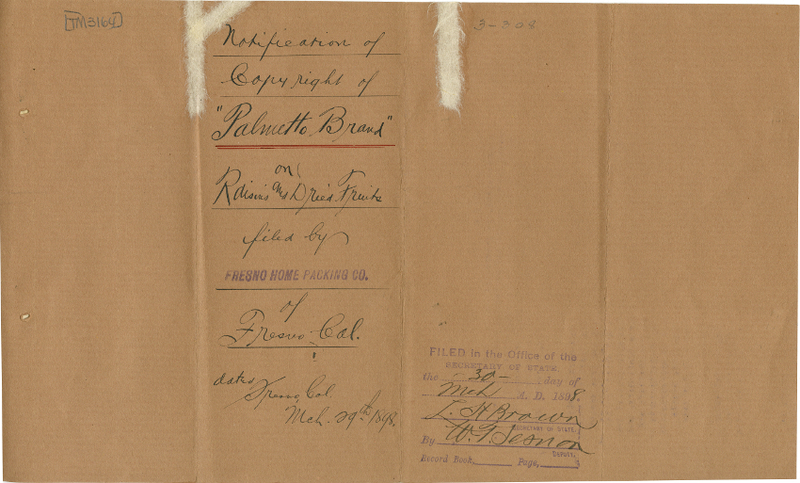 [TM3164]
3-308
Notification of
Copyright of
"Palmetto Brand"
on
Raisins and Dried Fruits
filed by
FRESNO HOME PACKING CO.
of
Fresno Cal.
dated Fresno, Cal.
Mch. 29th 1898.
FILED in the Office of the
SECRETARY OF STATE
the 30 day of
Mch A. D. 1898
L. H Brown
SECRETARY OF STATE.
By
Deputy.
Record Book, Page,